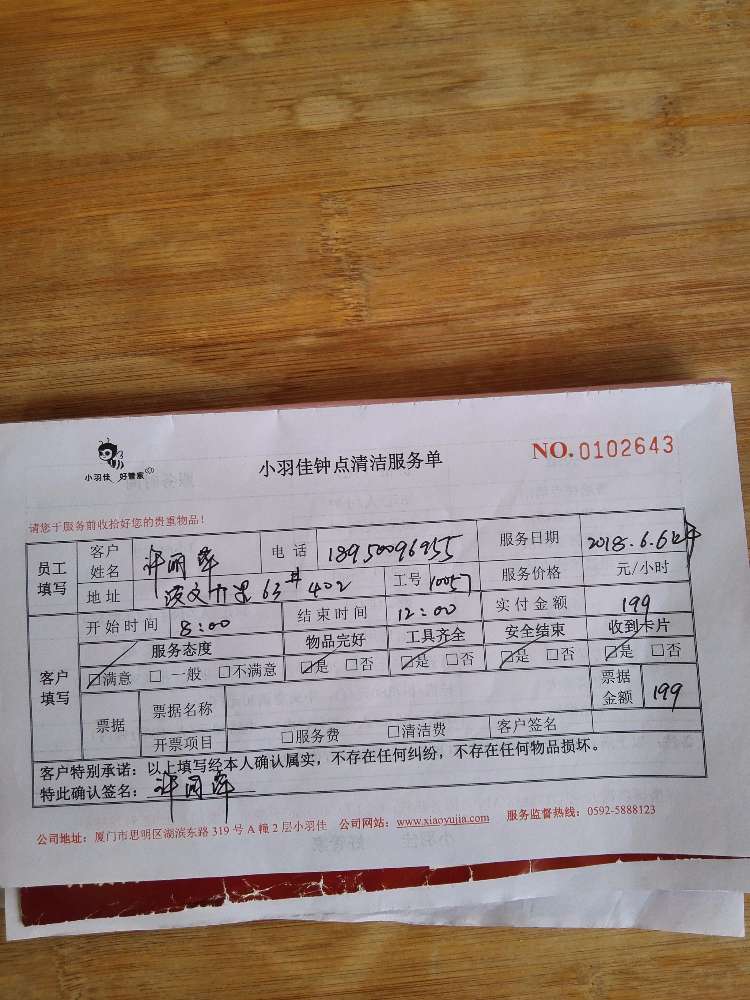 小羽佳 好管家
小羽佳钟点清洁服务单
NO.0102643
请您于服务前收拾好您的贵重物品！
员工填写 客户姓名 许丽萍 电话 18950096955 服务日期 2018.6.6
地址 63# 402 工号 10057 服务价格 元/小时
客户填写 开始时间 8:00 结束时间 12:00 实付金额 199
服务态度 物品完好 工具齐全 安全结束 收到卡片
☑满意 □一般 □不满意 ☑是 □否 ☑是 □否 ☑是 □否 ☑是 □否
票据 票据名称 票据金额 199
开票项目 □服务费 □清洁费 客户签名
客户特别承诺：以上填写经本人确认属实，不存在任何纠纷，不存在任何物品损坏。
特此确认签名：许丽萍
公司地址：厦门市思明区湖滨东路 319 号 A 幢 2 层小羽佳 公司网站：www.xiaoyujia.com 服务监督热线：0592-5888123